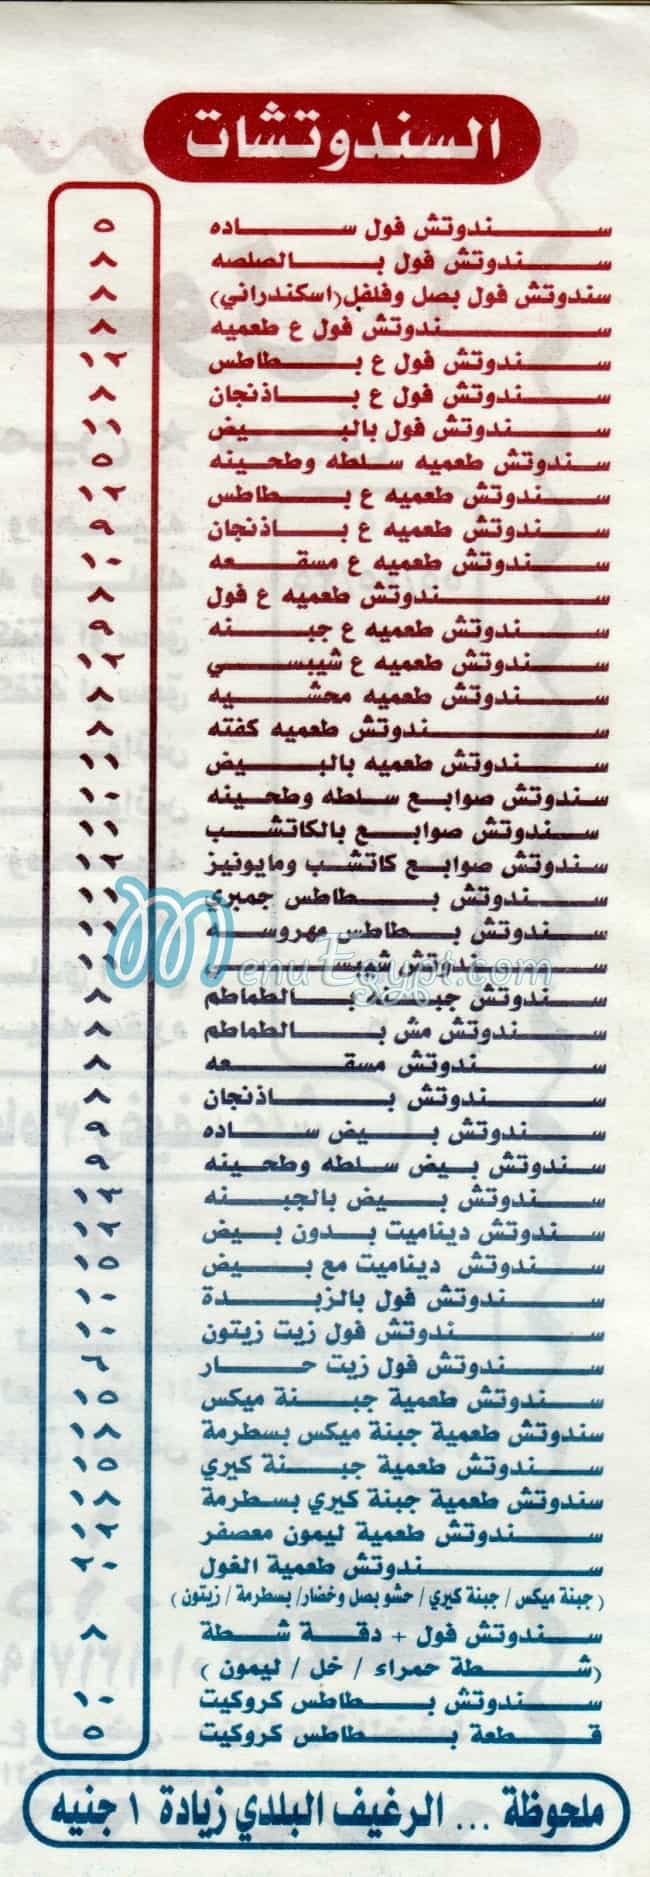 السندوتشات
سندوتش فول ساده ٥
سندوتش فول بالصلصه ٨
سندوتش فول بصل وفلفل (اسكندراني) ٨
سندوتش فول ع طعميه ٨
سندوتش فول ع بطاطس ١٢
سندوتش فول ع باذنجان ٨
سندوتش فول بالبيض ١١
سندوتش طعميه سلطه وطحينه ٥
سندوتش طعميه ع بطاطس ١٢
سندوتش طعميه ع باذنجان ٩
سندوتش طعميه ع مسقعه ١٠
سندوتش طعميه ع فول ٨
سندوتش طعميه ع جبنه ٩
سندوتش طعميه ع شيبسي ١٢
سندوتش طعميه محشيه ٨
سندوتش طعميه كفته ٨
سندوتش طعميه بالبيض ١١
سندوتش صوابع سلطه وطحينه ١٠
سندوتش صوابع بالكاتشب ١١
سندوتش صوابع كاتشب ومايونيز ١٢
سندوتش بطاطس جمبري ١١
سندوتش بطاطس مهروسه ١١
سندوتش شيبسي ١١
سندوتش جبنه بالطماطم ٨
سندوتش مش بالطماطم ٨
سندوتش مسقعه ٨
سندوتش باذنجان ٨
سندوتش بيض ساده ٩
سندوتش بيض سلطه وطحينه ٩
سندوتش بيض بالجبنه ١٣
سندوتش ديناميت بدون بيض ١٢
سندوتش ديناميت مع بيض ١٥
سندوتش فول بالزبدة ١٠
سندوتش فول زيت زيتون ١٠
سندوتش فول زيت حار ٦
سندوتش طعمية جبنة ميكس ١٥
سندوتش طعمية جبنة ميكس بسطرمة ١٨
سندوتش طعمية جبنة كيري ١٥
سندوتش طعمية جبنة كيري بسطرمة ١٨
سندوتش طعمية ليمون معصفر ١٢
سندوتش طعمية الغول ٢٠
(جبنة ميكس / جبنة كيري / حشو بصل وخضار/ بسطرمة / زيتون)
سندوتش فول + دقة شطة ٨
(شطة حمراء / خل / ليمون)
سندوتش بطاطس كروكيت ١٠
قطعة بطاطس كروكيت ٥
ملحوظة ... الرغيف البلدي زيادة ١ جنيه
MenuEgypt.com